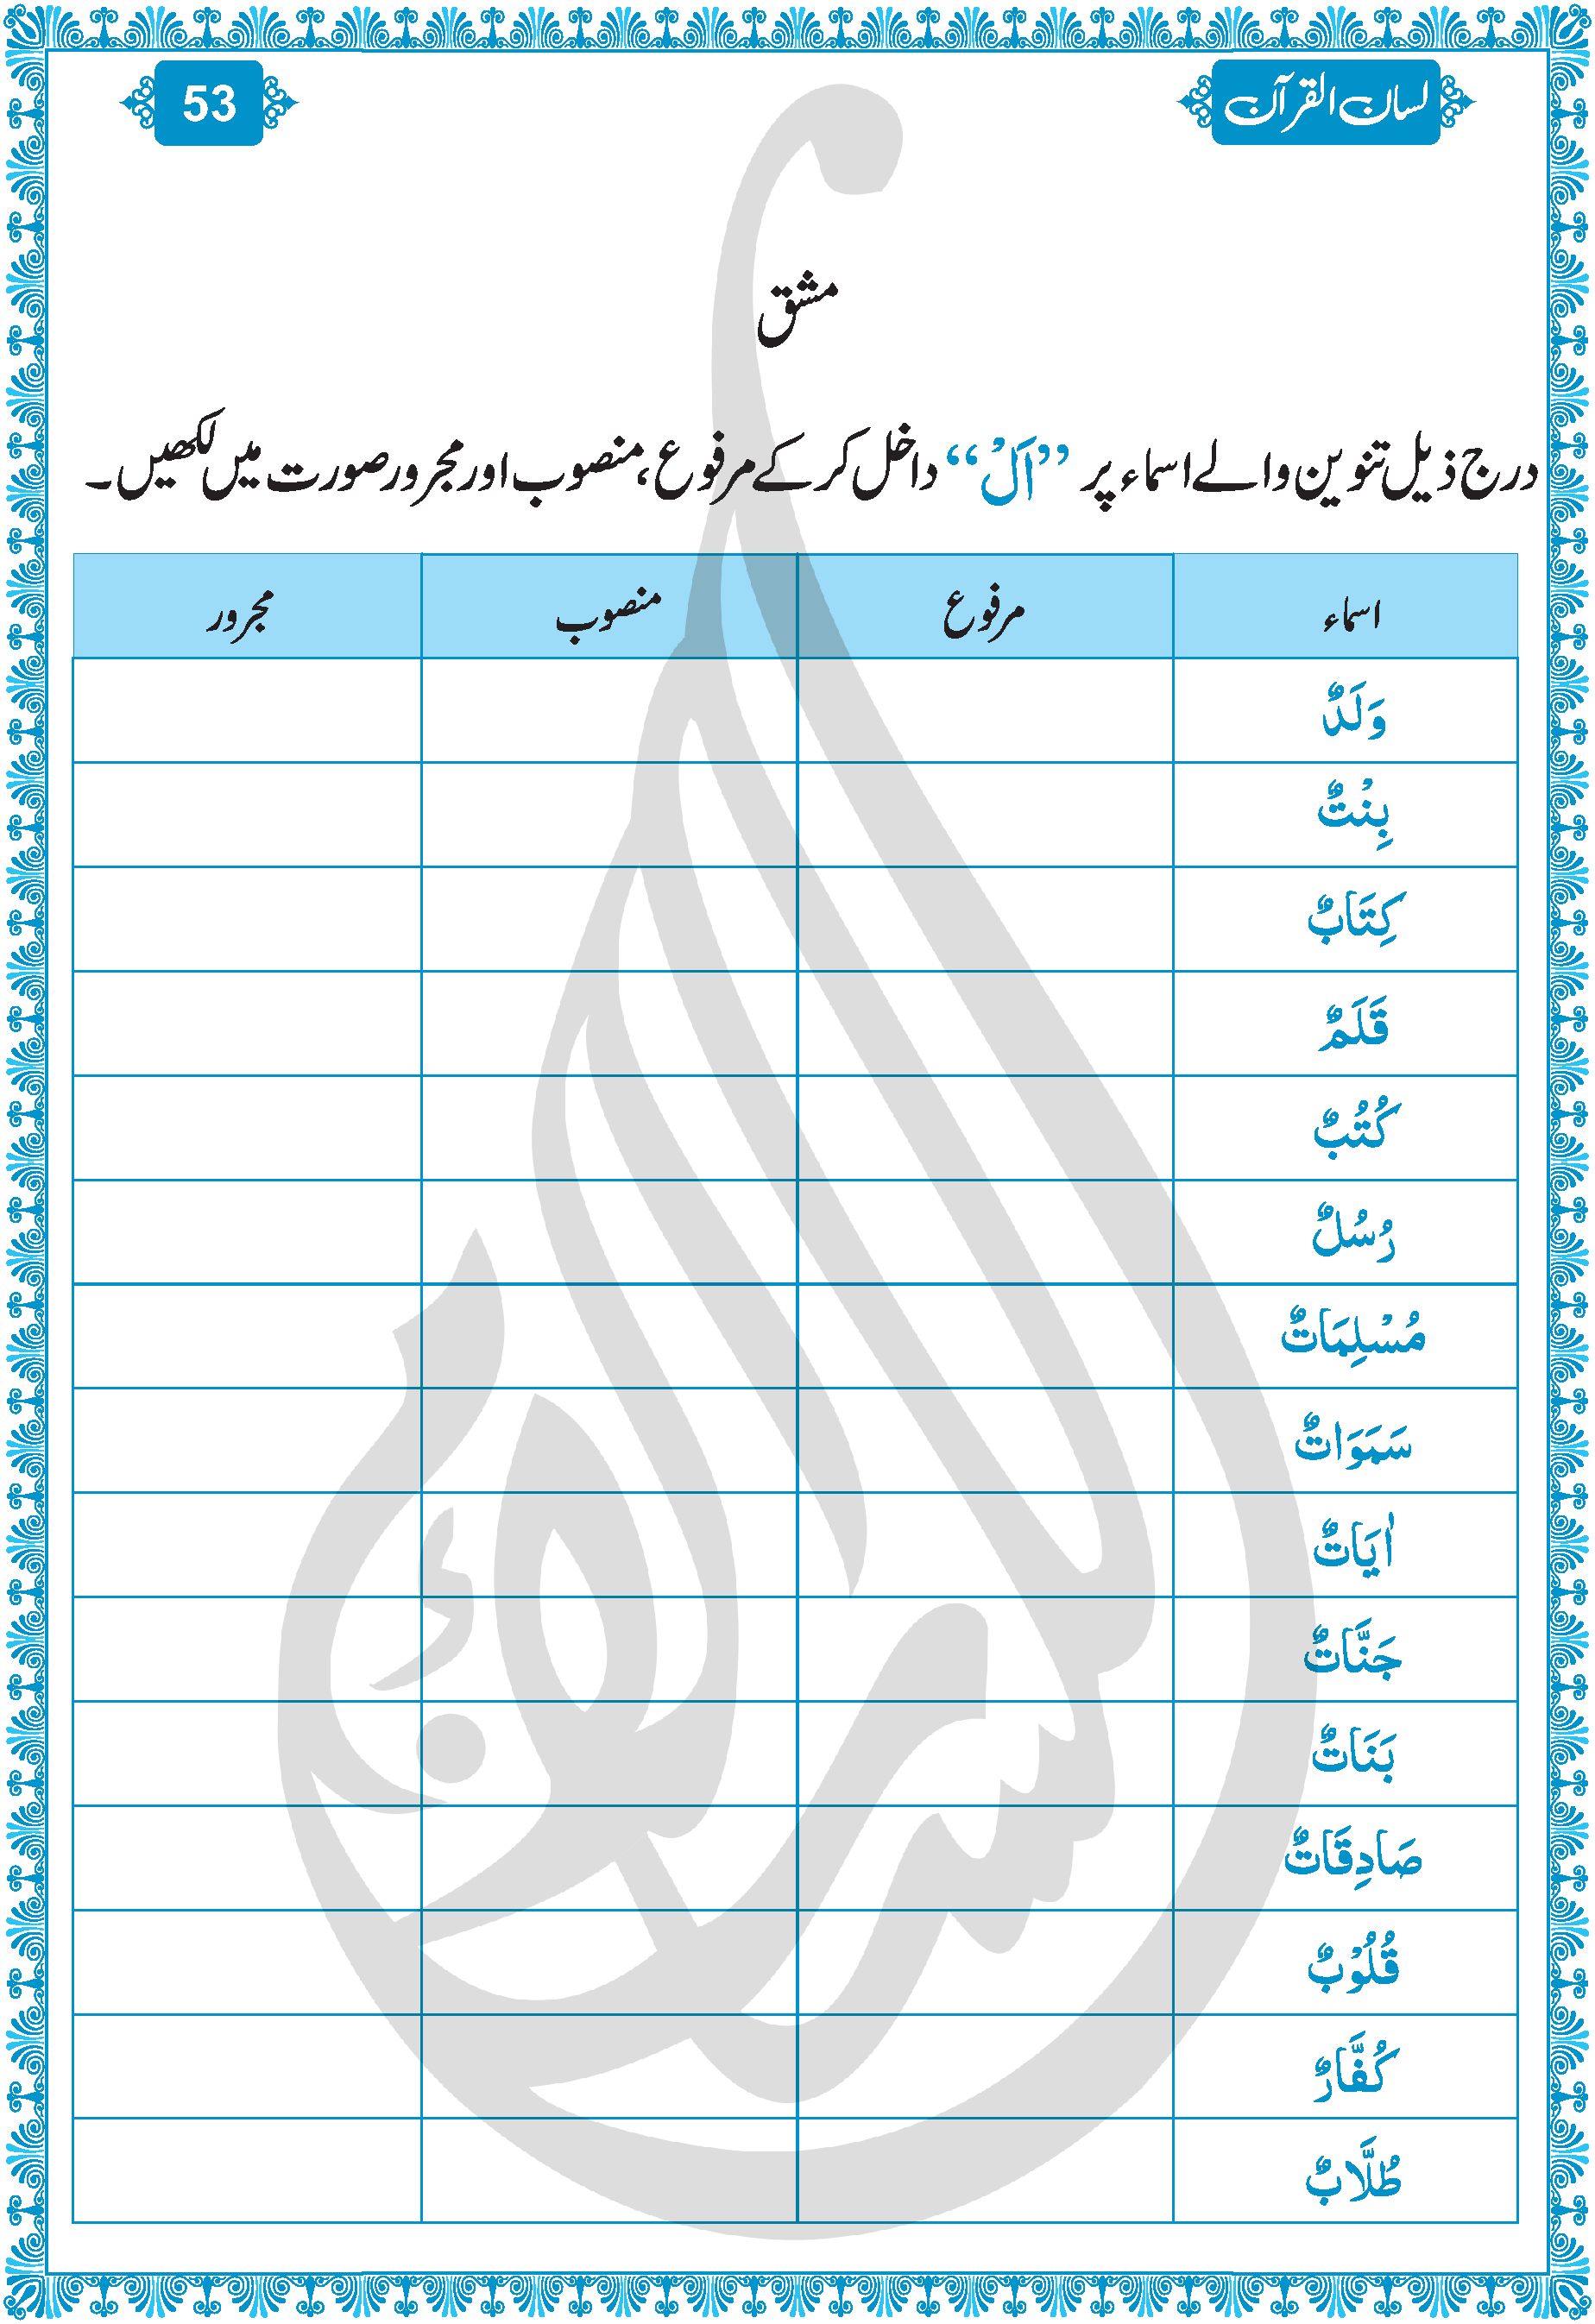 لسان القرآن
53
مشق
درج ذیل تنوین والے اسماء پر ”اَلْ“ داخل کر کے مرفوع، منصوب اور مجرور صورت میں لکھیں۔
اسماء مرفوع منصوب مجرور
وَلَدٌ
بِنْتٌ
كِتَابٌ
قَلَمٌ
كُتُبٌ
رُسُلٌ
مُسْلِمَاتٌ
سَمَوَاتٌ
اٰيَاتٌ
جَنَّاتٌ
بَنَاتٌ
صَادِقَاتٌ
قُلُوْبٌ
كُفَّارٌ
طُلَّابٌ